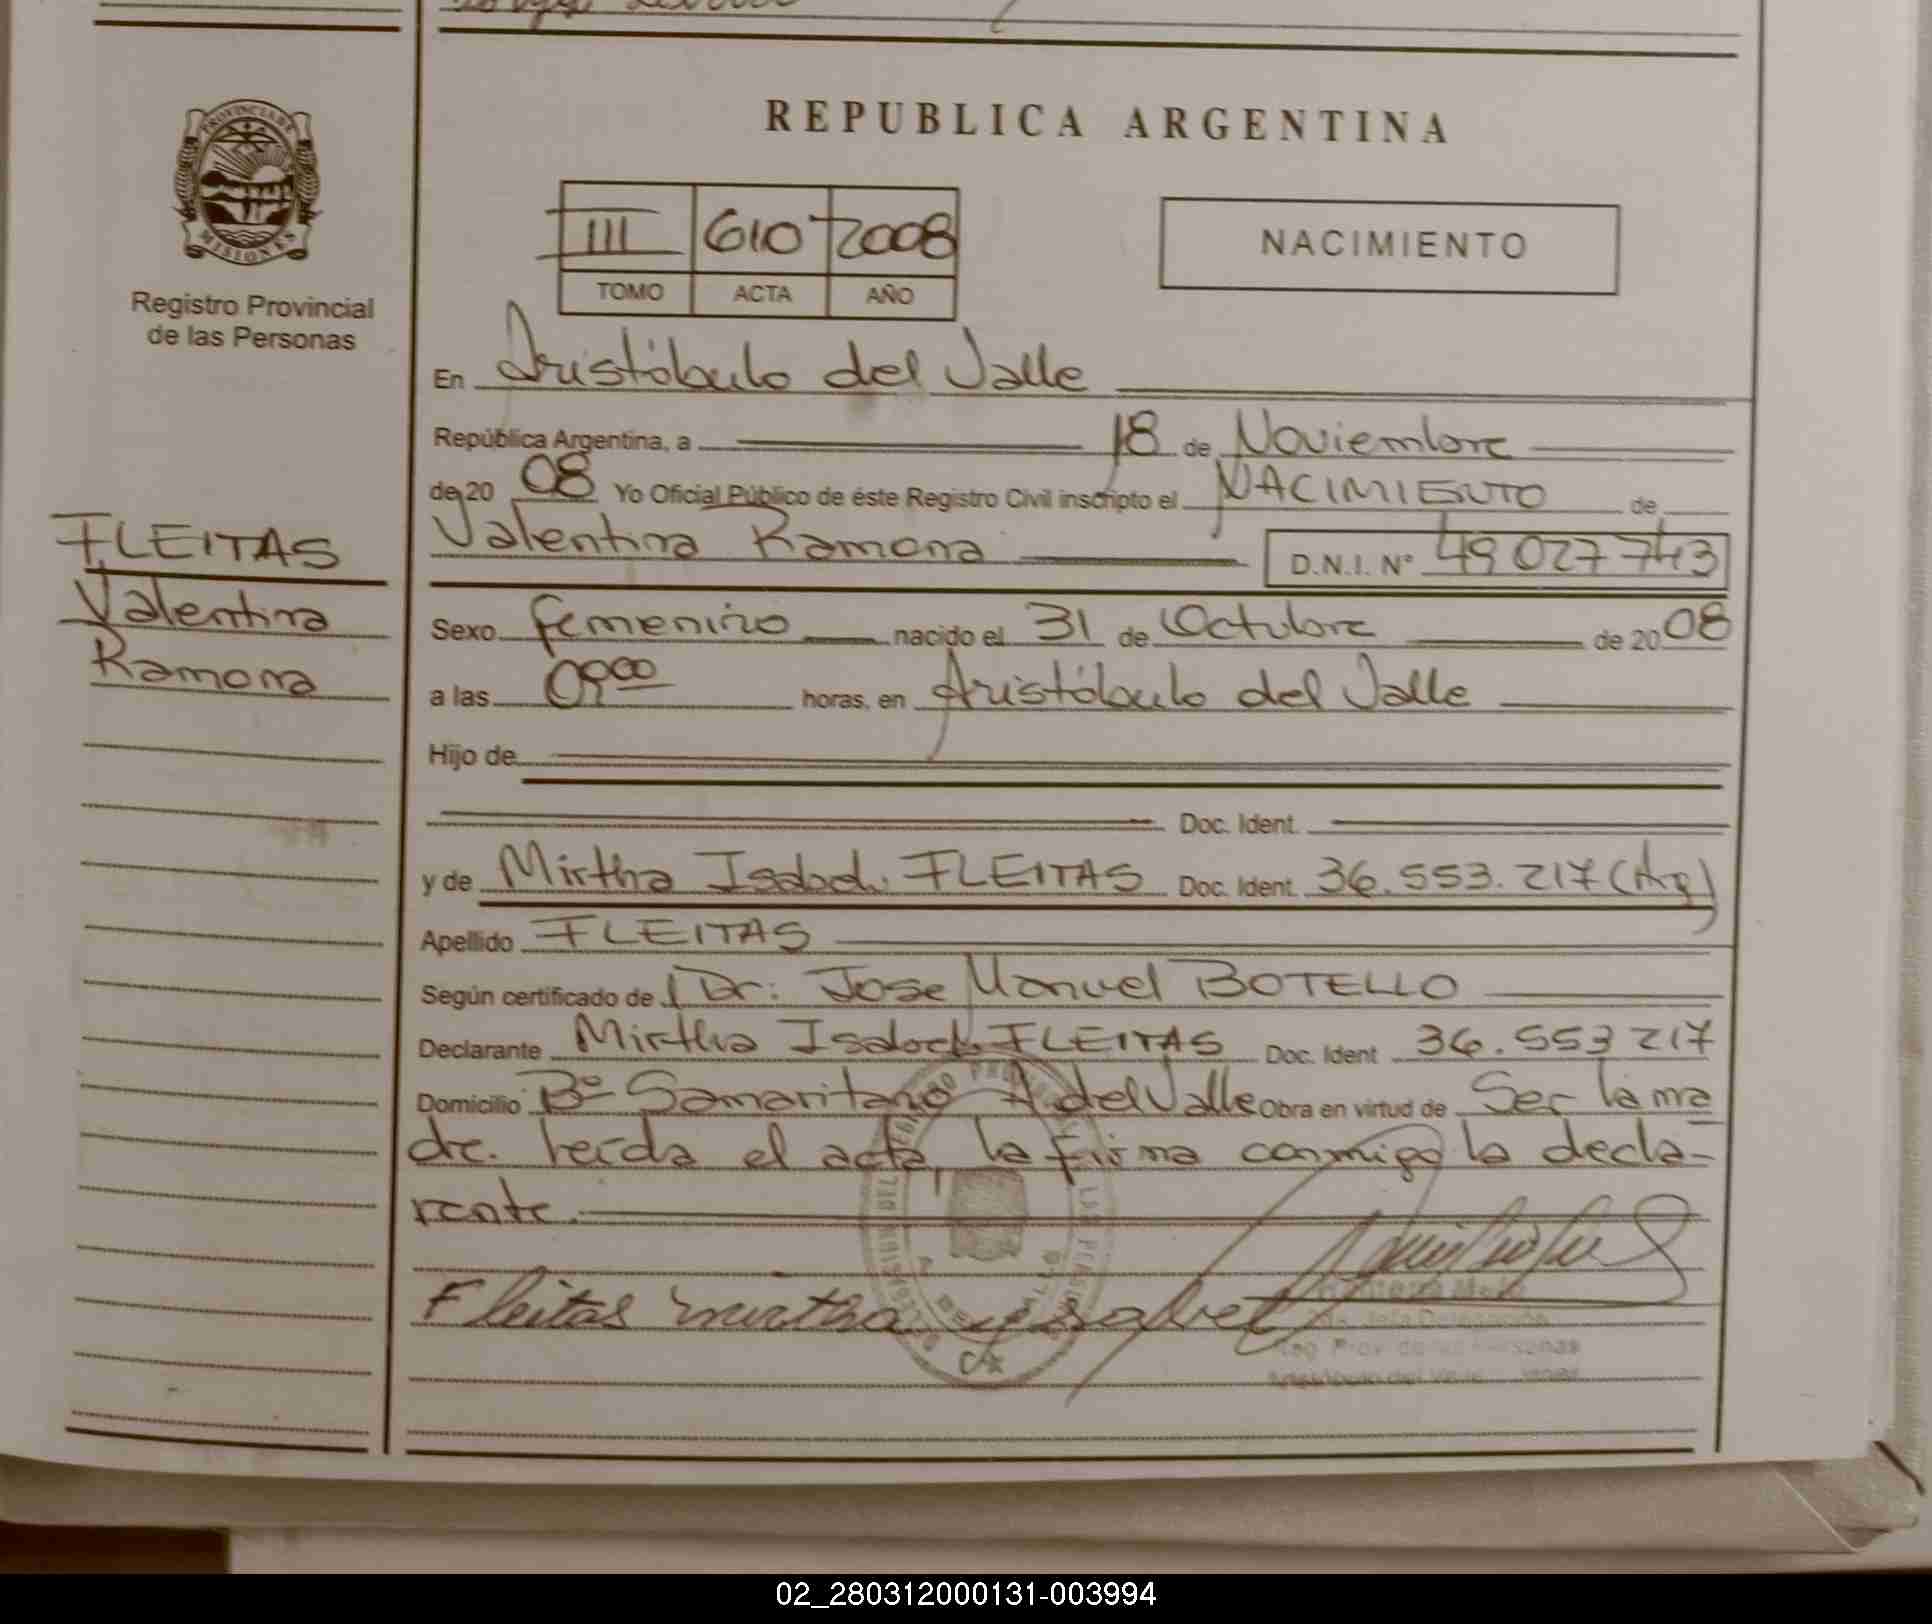 REPUBLICA ARGENTINA
PROVINCIA DE MISIONES
Registro Provincial
de las Personas
III 610 2008
TOMO ACTA AÑO
NACIMIENTO
En Aristóbulo del Valle
República Argentina, a 18 de Noviembre
de 20 08 Yo Oficial Público de éste Registro Civil inscripto el NACIMIENTO de
Valentina Ramona D.N.I. N° 49 027 743
FLEITAS
Valentina
Ramona
Sexo femenino nacido el 31 de Octubre de 20 08
a las 09 00 horas, en Aristóbulo del Valle
Hijo de
Doc. Ident.
y de Mirtha Isabel FLEITAS Doc. Ident. 36.553.217 (Arg)
Apellido FLEITAS
Según certificado de Dr: Jose Manuel BOTELLO
Declarante Mirtha Isabel FLEITAS Doc. Ident 36.553 217
Domicilio Bº Samaritano A. del Valle Obra en virtud de Ser la ma
dre. leída el acta, la firma conmigo la decla-
rante.
Fleitas mirtha ysabel
02_280312000131-003994